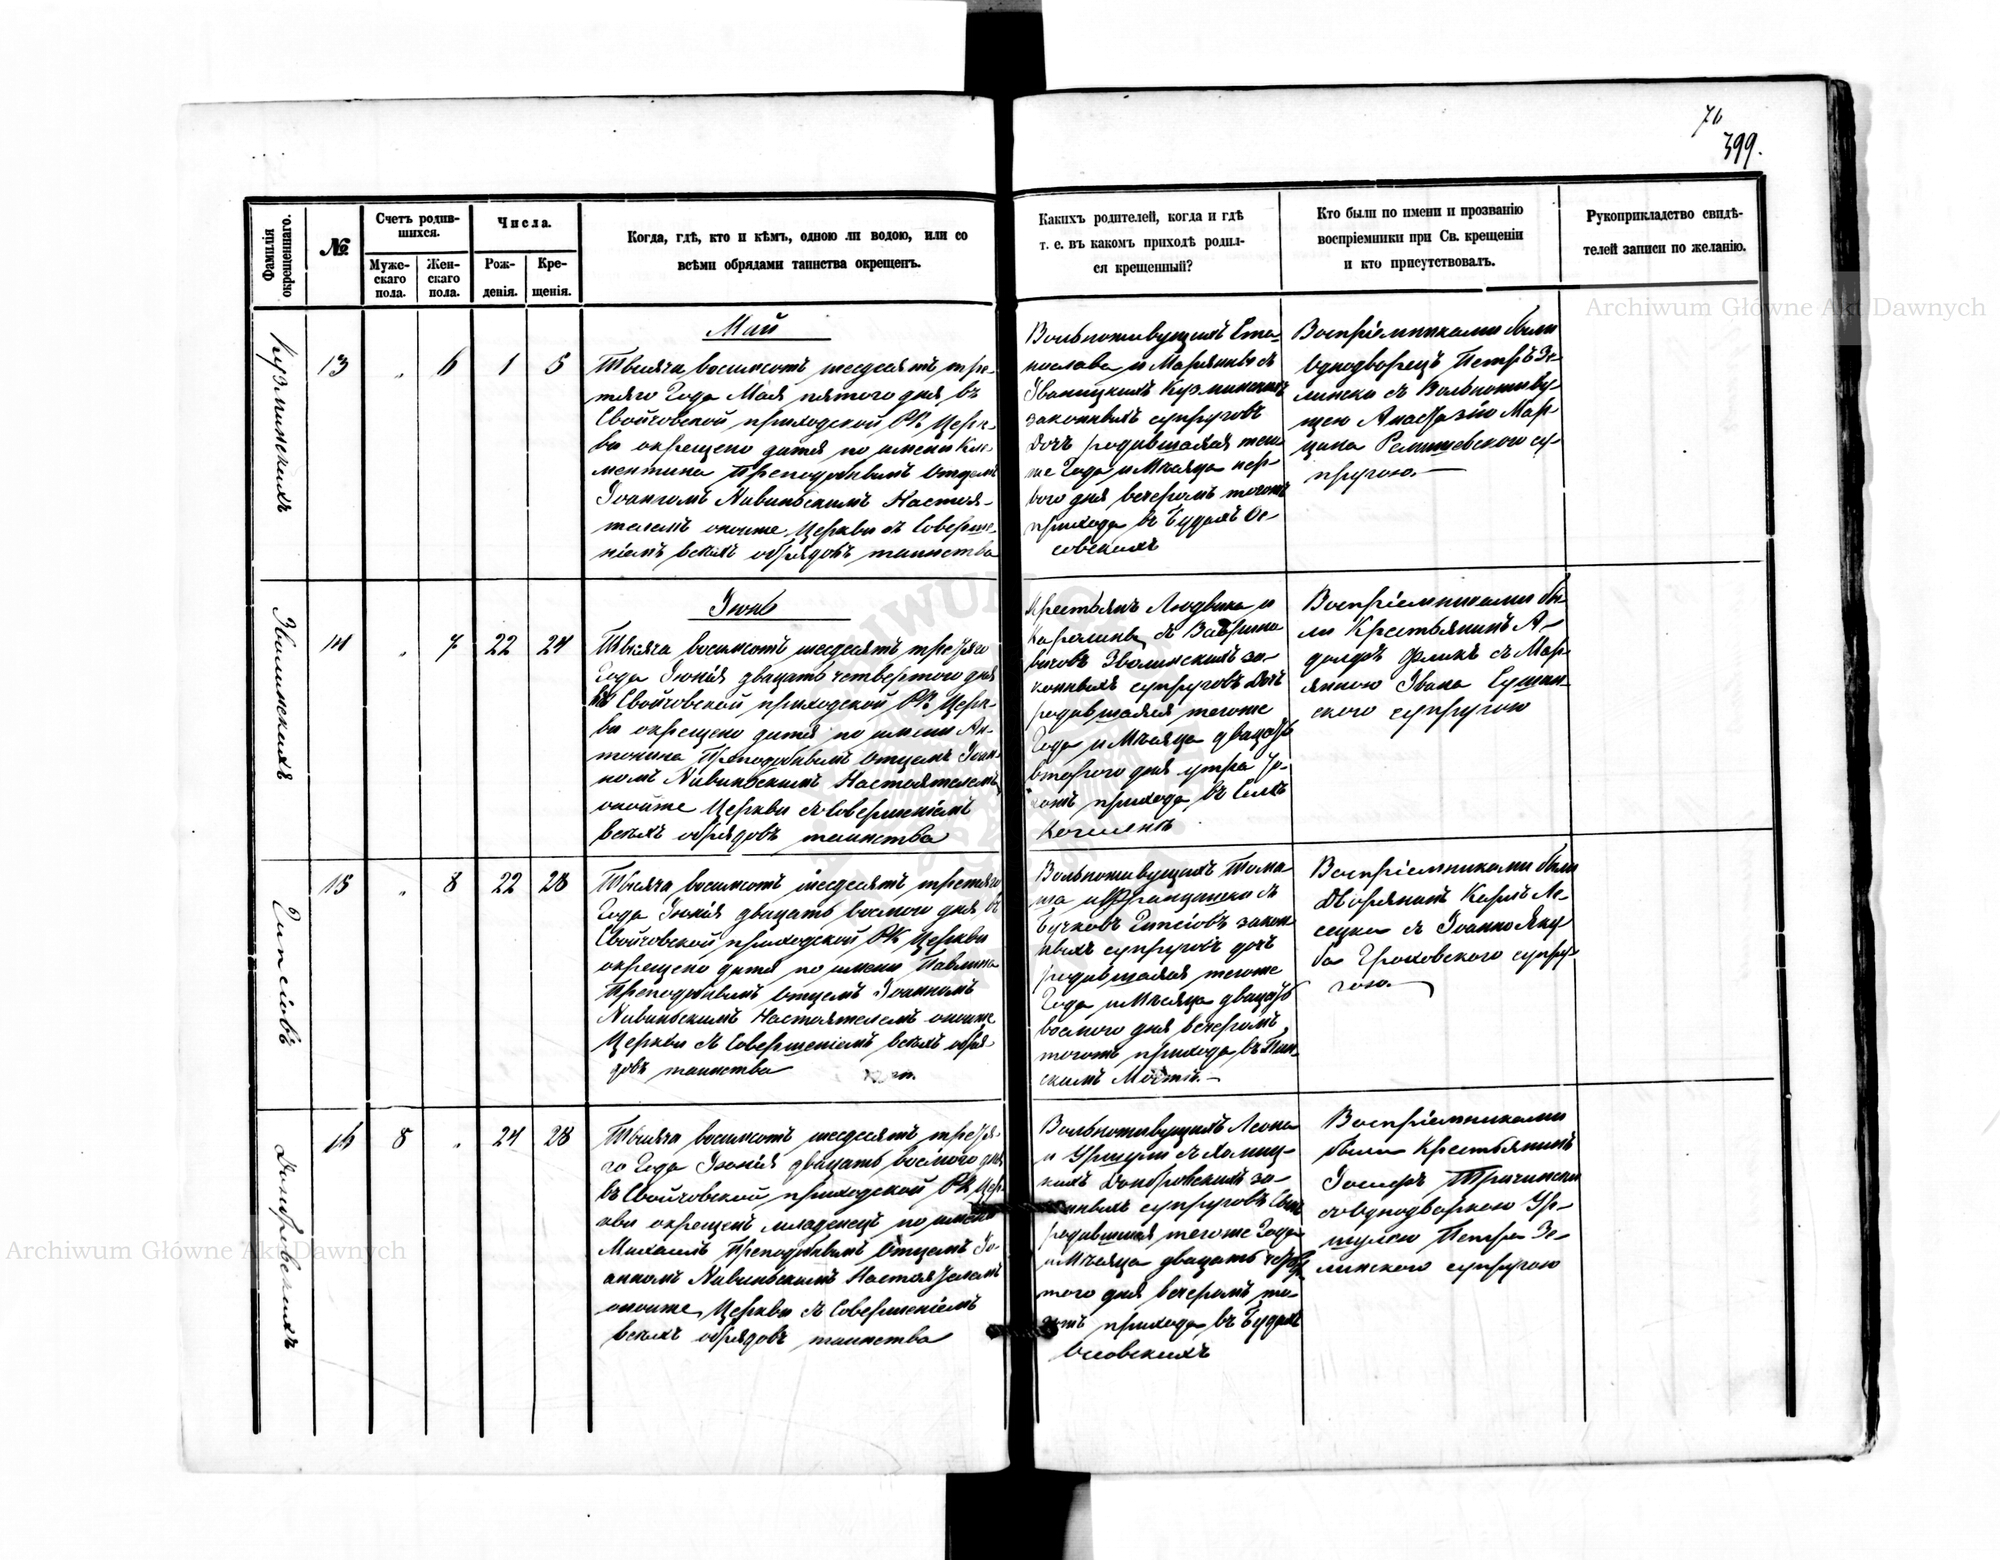 70
399.
Фамилія окрещеннаго.
№
Счетъ родив-
шихся.
Муже-
скаго
пола.
Жен-
скаго
пола.
Числа.
Рож-
денія.
Кре-
щенія.
Когда, гдѣ, кто и кѣмъ, одною ли водою, или со
всѣми обрядами таинства окрещенъ.
Какихъ родителей, когда и гдѣ
т. е. въ какомъ приходѣ родил-
ся крещенный?
Кто были по имени и прозванію
воспріемники при Св. крещеніи
и кто присутствовалъ.
Рукоприкладство свидѣ-
телей записи по желанію.
Archiwum Główne Akt Dawnych
Кузминскихъ
13 „ 6 1 5
Май
Тысяча восимсотъ шесдесятъ тре-
тяго Года Мая пятого дня въ
Свойчовской приходской РК Церк-
ви окрещено дитя по имени Кле-
ментина Преподобнымъ Отцемъ
Іоанномъ Настоя-
телемъ оноиже Церкви съ Соверше-
ніемъ всехъ обрядовъ таинства
Вольноживущихъ Ста-
нислава и Маріянны съ
Иваницкихъ Кузминскихъ
законныхъ супруговъ
дочь родившаяся того
же Года и Мѣсяца пер-
вого дня вечеромъ тогожъ
прихода въ Будахъ Ос-
совскихъ
Воспріемниками были
Однодворецъ Петръ Зе-
лински съ Вольноживу-
щею Анастазіею Мар-
цина супругою.
Зволинскихъ
14 „ 7 22 24
Іюнь
Тысяча восимсотъ шесдесятъ третяго
Года Іюнія двацать четвертого дня
въ Свойчовской приходской РК Церк-
ви окрещено дитя по имени Ан-
тонина Преподобнымъ Отцемъ Іоан-
номъ Настоятелемъ
оноиже Церкви съ Совершеніемъ
всехъ обрядовъ таинства
Крестьянъ Людвика и
Каролины съ Вавржина-
вичовъ Зволинскихъ за-
конныхъ супруговъ дочь
родившаяся тогоже
Года и Мѣсяца двацать
второго дня утра то-
гожъ прихода въ Селѣ
Воспріемниками бы-
ли Крестьянинъ А-
дольфъ съ Мар-
янною Ивана Сушин-
ского супругою
15 „ 8 22 28
Тысяча восимсотъ шесдесятъ третяго
Года Іюнія двацать восмого дня въ
Свойчовской приходской РК Церкви
окрещено дитя по имени Павлина
Преподобнымъ Отцемъ Іоанномъ
Настоятелемъ оноиже
Церкви съ Совершеніемъ всехъ обря-
довъ таинства
Вольноживущихъ Тома-
ша и Францишки съ
Бучковъ закон-
ныхъ супруговъ дочь
родившаяся тогоже
Года и Мѣсяца двацать
восмого дня вечеромъ
тогожъ прихода въ Пин-
скимъ Мостѣ.
Воспріемниками были
Дворянинъ Кароль Ле-
сецки съ Іоанною Яку-
ба Гроховского супру-
гою.
Домбровскихъ
16 8 „ 24 28
Тысяча восимсотъ шесдесятъ третя-
го Года Іюнія двацать восмого дня
въ Свойчовской приходской РК Цер-
кви окрещенъ младенецъ по имени
Михаилъ Преподобнымъ Отцемъ Іо-
анномъ Настоятелемъ
оноиже Церкви съ Совершеніемъ
всехъ обрядовъ таинства
Вольноживущихъ Леона
и Уршули съ
Домбровскихъ за-
конныхъ супруговъ Сынъ
родившийся тогоже Года
и Мѣсяца двацать четвер-
того дня вечеромъ то-
гожъ прихода въ Будахъ
Оссовскихъ
Воспріемниками
были Крестьянинъ
Тричински
съ Однодворкою Ур-
шулею Петра Зе-
линского супругою
Archiwum Główne Akt Dawnych